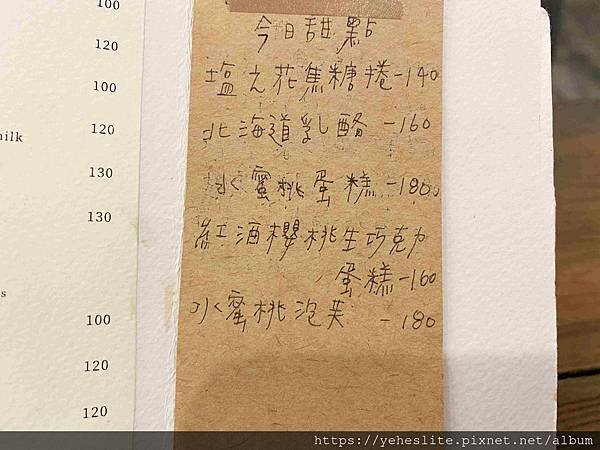 100
120
100
120
ilk
130
130
s
100
120
120
今日甜點
塩之花焦糖捲-140
北海道乳酪-160
水蜜桃蛋糕-180
紅酒櫻桃生巧克力
蛋糕-160
水蜜桃泡芙-180
https://yeheslite.pixnet.net/album